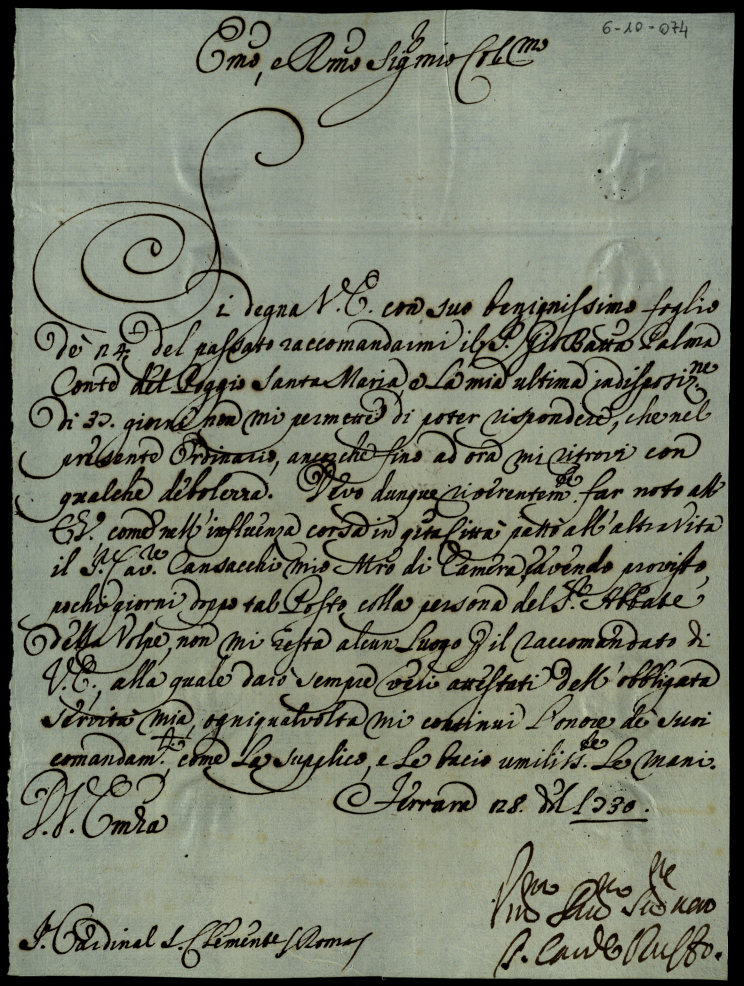 6-10-074
Emo, e Rmo Sig mio Col.mo
Si degna V.E. con suo benignissimo foglio
de 24 del passato raccomandarmi il S. Gio Batta Palma
Conte del Poggio Santa Maria, e La mia ultima indisposiz.ne
di 30. giorni non mi permette di poter rispondere, che nel
presente Ordinario, ancorche fino ad ora mi ritrovi con
qualche debolezza. Devo dunque riverentem.te far noto all'
E.V. come nell'influenza corsa in q.ta Città passò all'altra Vita
il S. Cav.re Cansacchi mio Mro di Camera, havendo provisto,
pochi giorni doppo tal Posto, colla persona del S. Abbate
della Volpe, non mi resta alcun Luogo p il raccomandato di
V.E., alla quale darò sempre veri attestati dell'obbligata
servitù mia, ogniqualvolta mi continui l'onore de suoi
comandam.ti, come La supplico, e Le bacio umiliss.te Le mani.
V.E. Emza
Ferrara 28. 1730.
S. Cardinal S. Clemente / Roma /
Servre
S. Card. Ruffo.